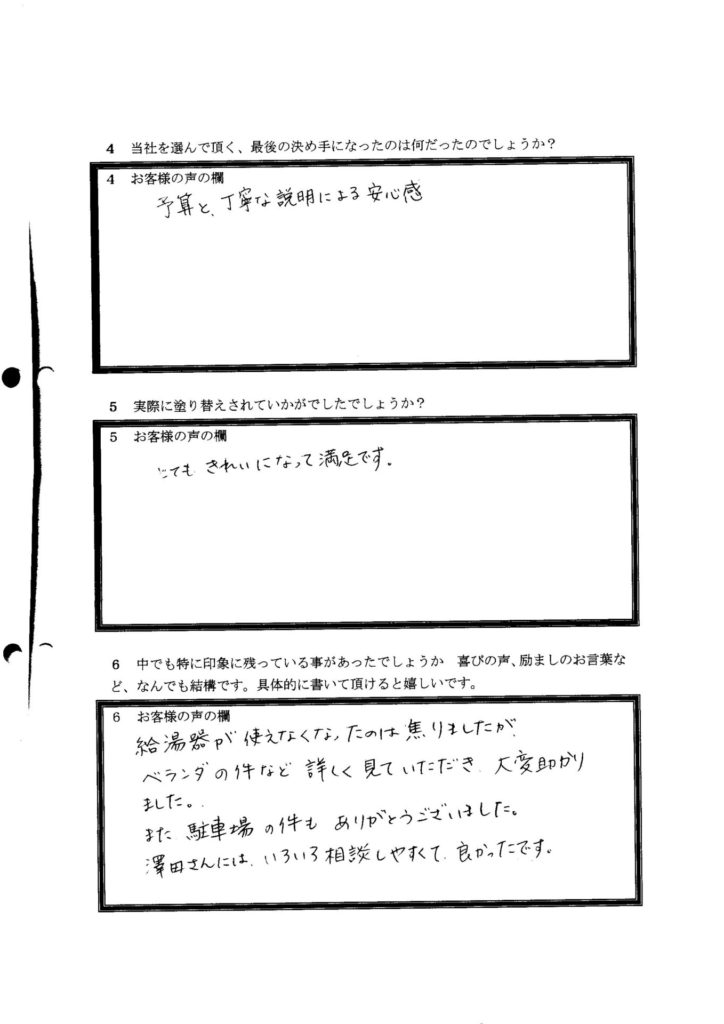 4 当社を選んで頂く、最後の決め手になったのは何だったのでしょうか？
4 お客様の声の欄
予算と、丁寧な説明による安心感
5 実際に塗り替えされていかがでしたでしょうか？
5 お客様の声の欄
とても きれいになって満足です。
6 中でも特に印象に残っている事があったでしょうか 喜びの声、励ましのお言葉な
ど、なんでも結構です。具体的に書いて頂けると嬉しいです。
6 お客様の声の欄
給湯器が使えなくなったのは焦りましたが
ベランダの件など詳しく見ていただき、大変助かり
ました。
また駐車場の件もありがとうございました。
澤田さんには、いろいろ相談しやすくて、良かったです。